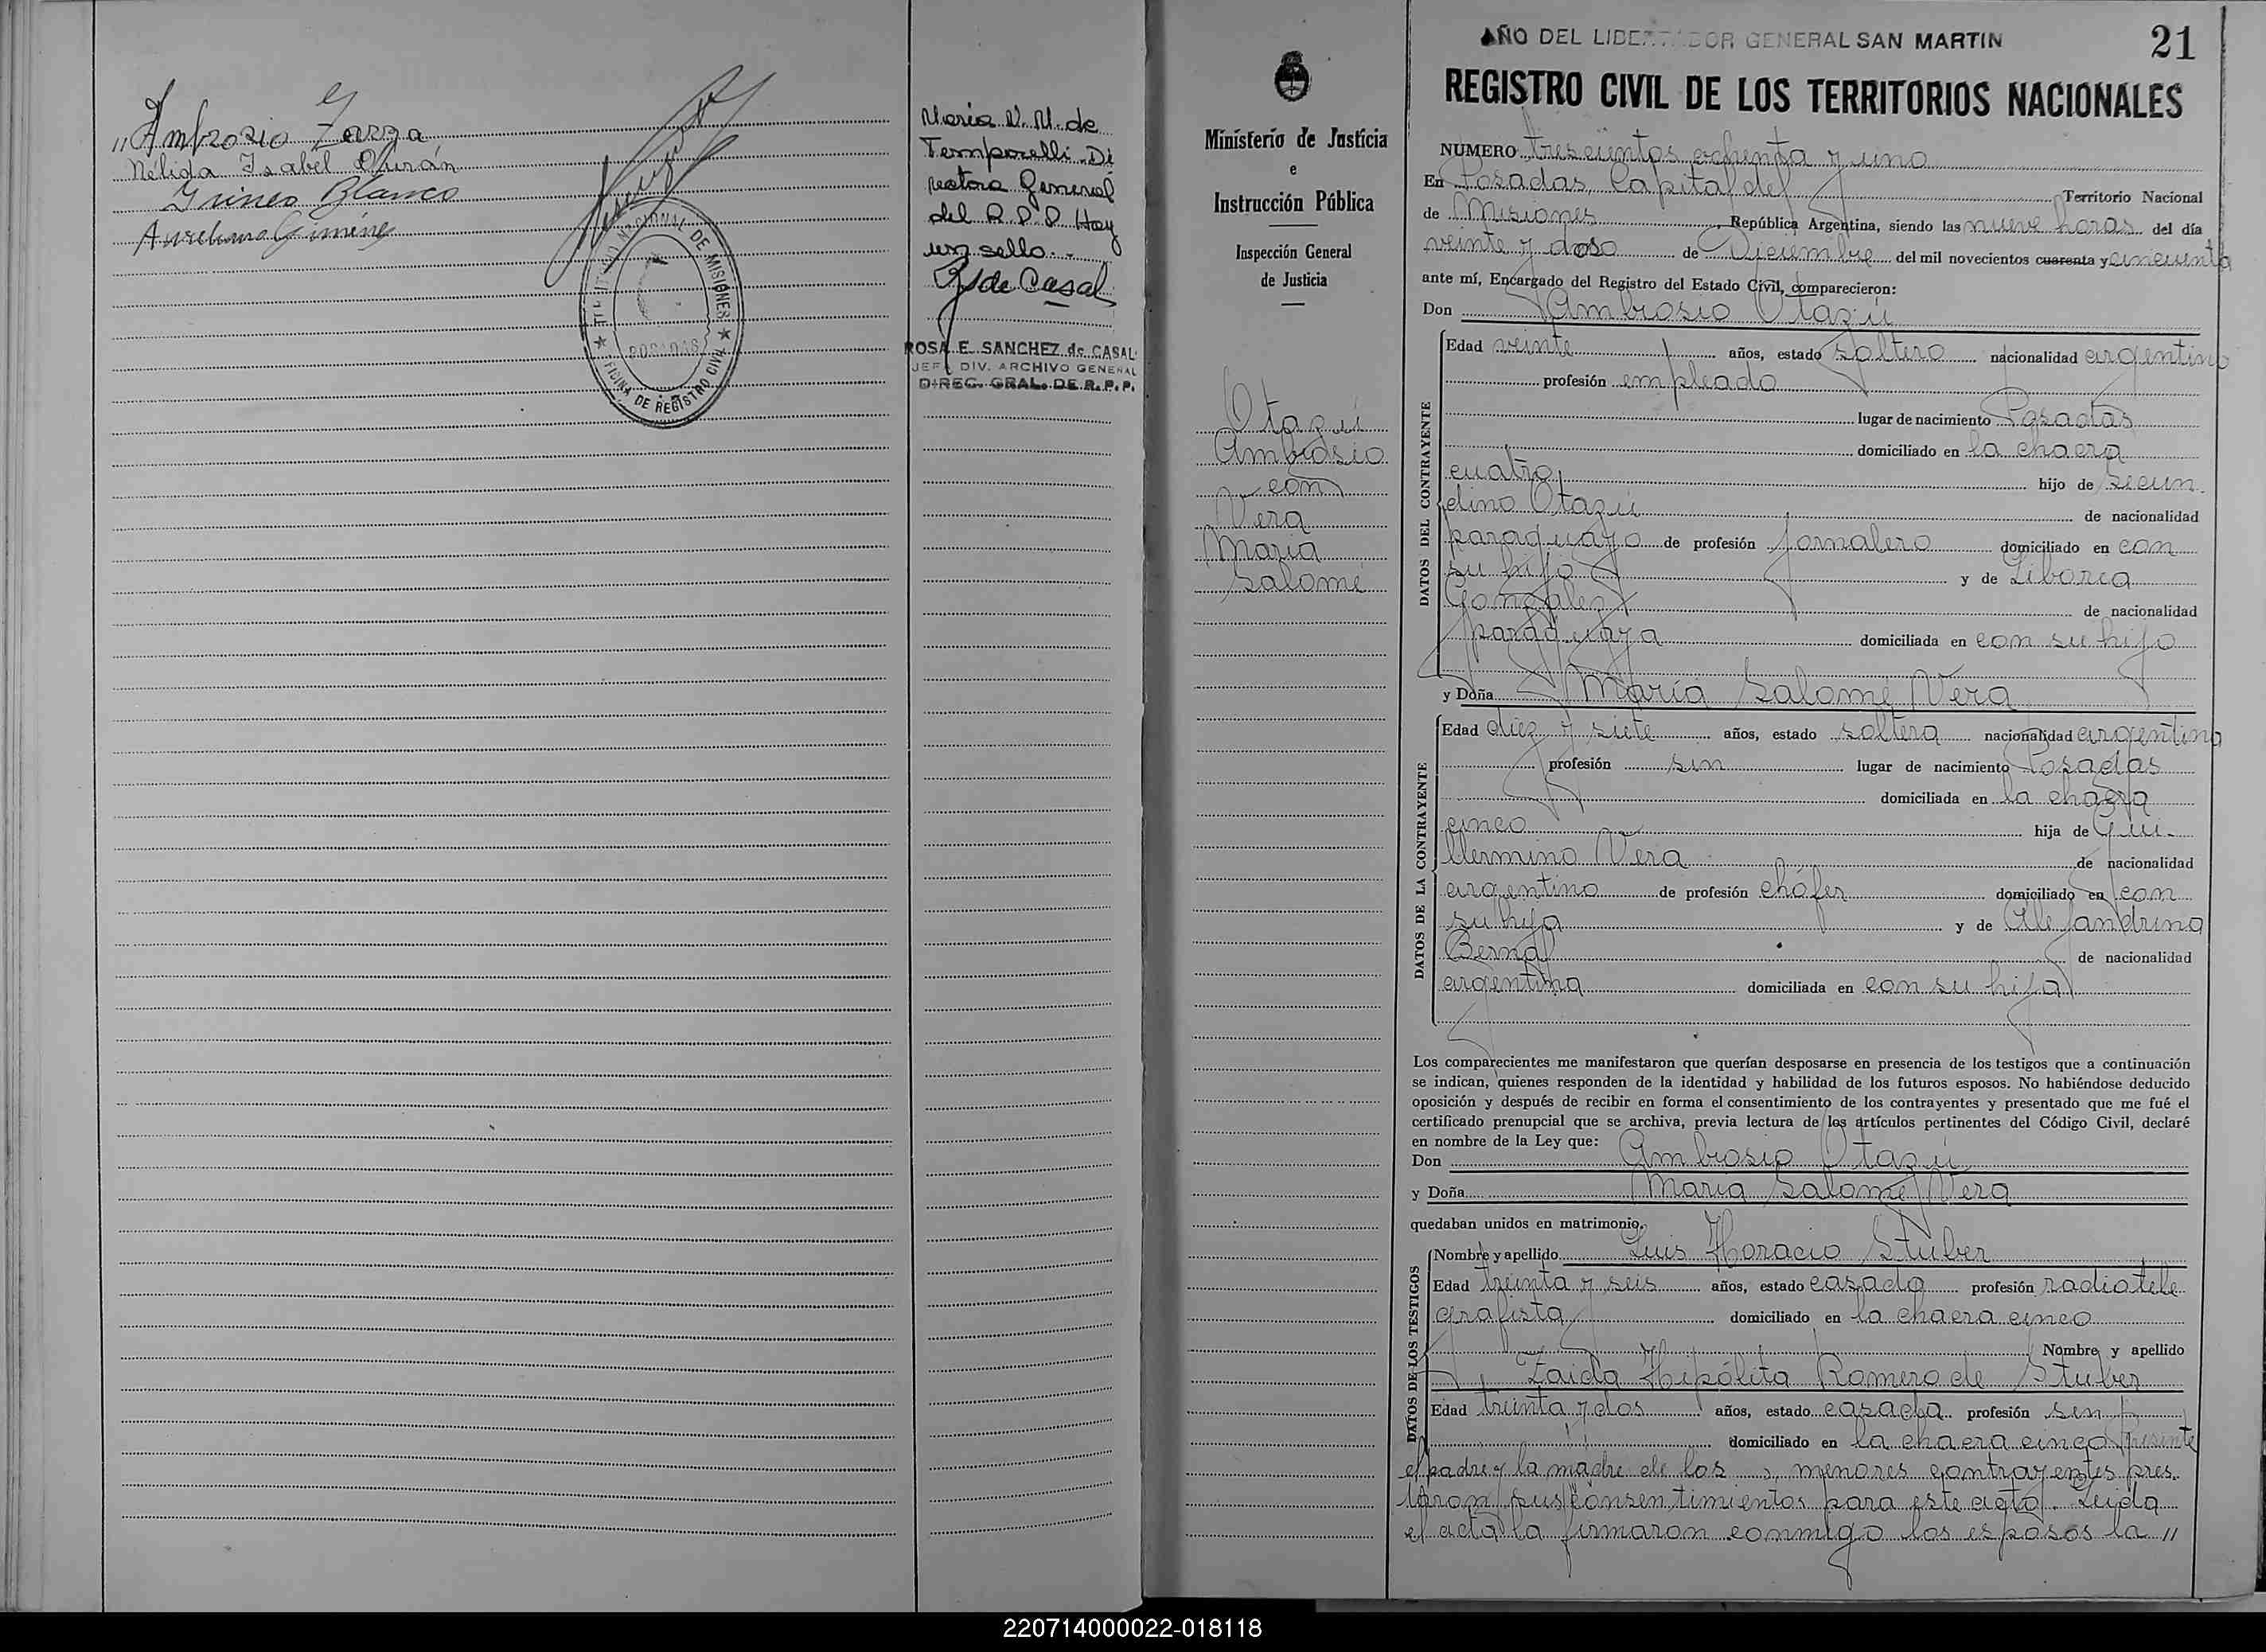 "Ambrosio Zarza
Nélida Isabel Durán
Irineo Blanco
Aureliana Giménez
TERRITORIO NACIONAL DE MISIONES
POSADAS
OFICINA DE REGISTRO CIVIL
Maria V. M. de
Temporelli - Di
rectora General
del R.P.P. Hay
un sello. -
R S de Casal
ROSA E. SANCHEZ de CASAL
JEFA DIV. ARCHIVO GENERAL
DIREC. GRAL. DE R. P. P.
Ministerio de Justicia
e
Instrucción Pública
Inspección General
de Justicia
Otazú
Ambrosio
con
Vera
María
Salomé
AÑO DEL LIBERTADOR GENERAL SAN MARTIN
21
REGISTRO CIVIL DE LOS TERRITORIOS NACIONALES
NUMERO trescientos ochenta y uno
En Posadas, Capital del Territorio Nacional
de Misiones, República Argentina, siendo las nueve horas del día
veinte y dos de Diciembre del mil novecientos cuarenta y cincuenta
ante mí, Encargado del Registro del Estado Civil, comparecieron:
Don Ambrosio Otazú
DATOS DEL CONTRAYENTE
Edad veinte años, estado soltero nacionalidad argentino
profesión empleado
lugar de nacimiento Posadas
domiciliado en la chacra
cuatro, hijo de Secun-
dino Otazú de nacionalidad
paraguayo de profesión jornalero domiciliado en con
su hijo y de Liborea
González de nacionalidad
paraguaya domiciliada en con su hijo
y Doña María Salomé Vera
DATOS DE LA CONTRAYENTE
Edad diez y siete años, estado soltera nacionalidad argentina
profesión sin lugar de nacimiento Posadas
domiciliada en la chacra
cinco hija de Gui-
llermino Vera de nacionalidad
argentino de profesión chófer domiciliado en con
su hija y de Alejandrina
Bernal de nacionalidad
argentina domiciliada en con su hija
Los comparecientes me manifestaron que querían desposarse en presencia de los testigos que a continuación
se indican, quienes responden de la identidad y habilidad de los futuros esposos. No habiéndose deducido
oposición y después de recibir en forma el consentimiento de los contrayentes y presentado que me fué el
certificado prenupcial que se archiva, previa lectura de los artículos pertinentes del Código Civil, declaré
en nombre de la Ley que:
Don Ambrosio Otazú
y Doña María Salomé Vera
quedaban unidos en matrimonio.
DATOS DE LOS TESTIGOS
Nombre y apellido Luis Horacio Stuber
Edad treinta y seis años, estado casado profesión radiotele
grafista domiciliado en la chacra cinco
Nombre y apellido
Zaida Hipólita Romero de Stuber
Edad treinta y dos años, estado casada profesión sin
domiciliado en la chacra cinco Presente
el padre y la madre de los menores contrayentes pres-
taron sus consentimientos para este acto. Leida
el acta la firmaron conmigo los esposos la "
220714000022-018118